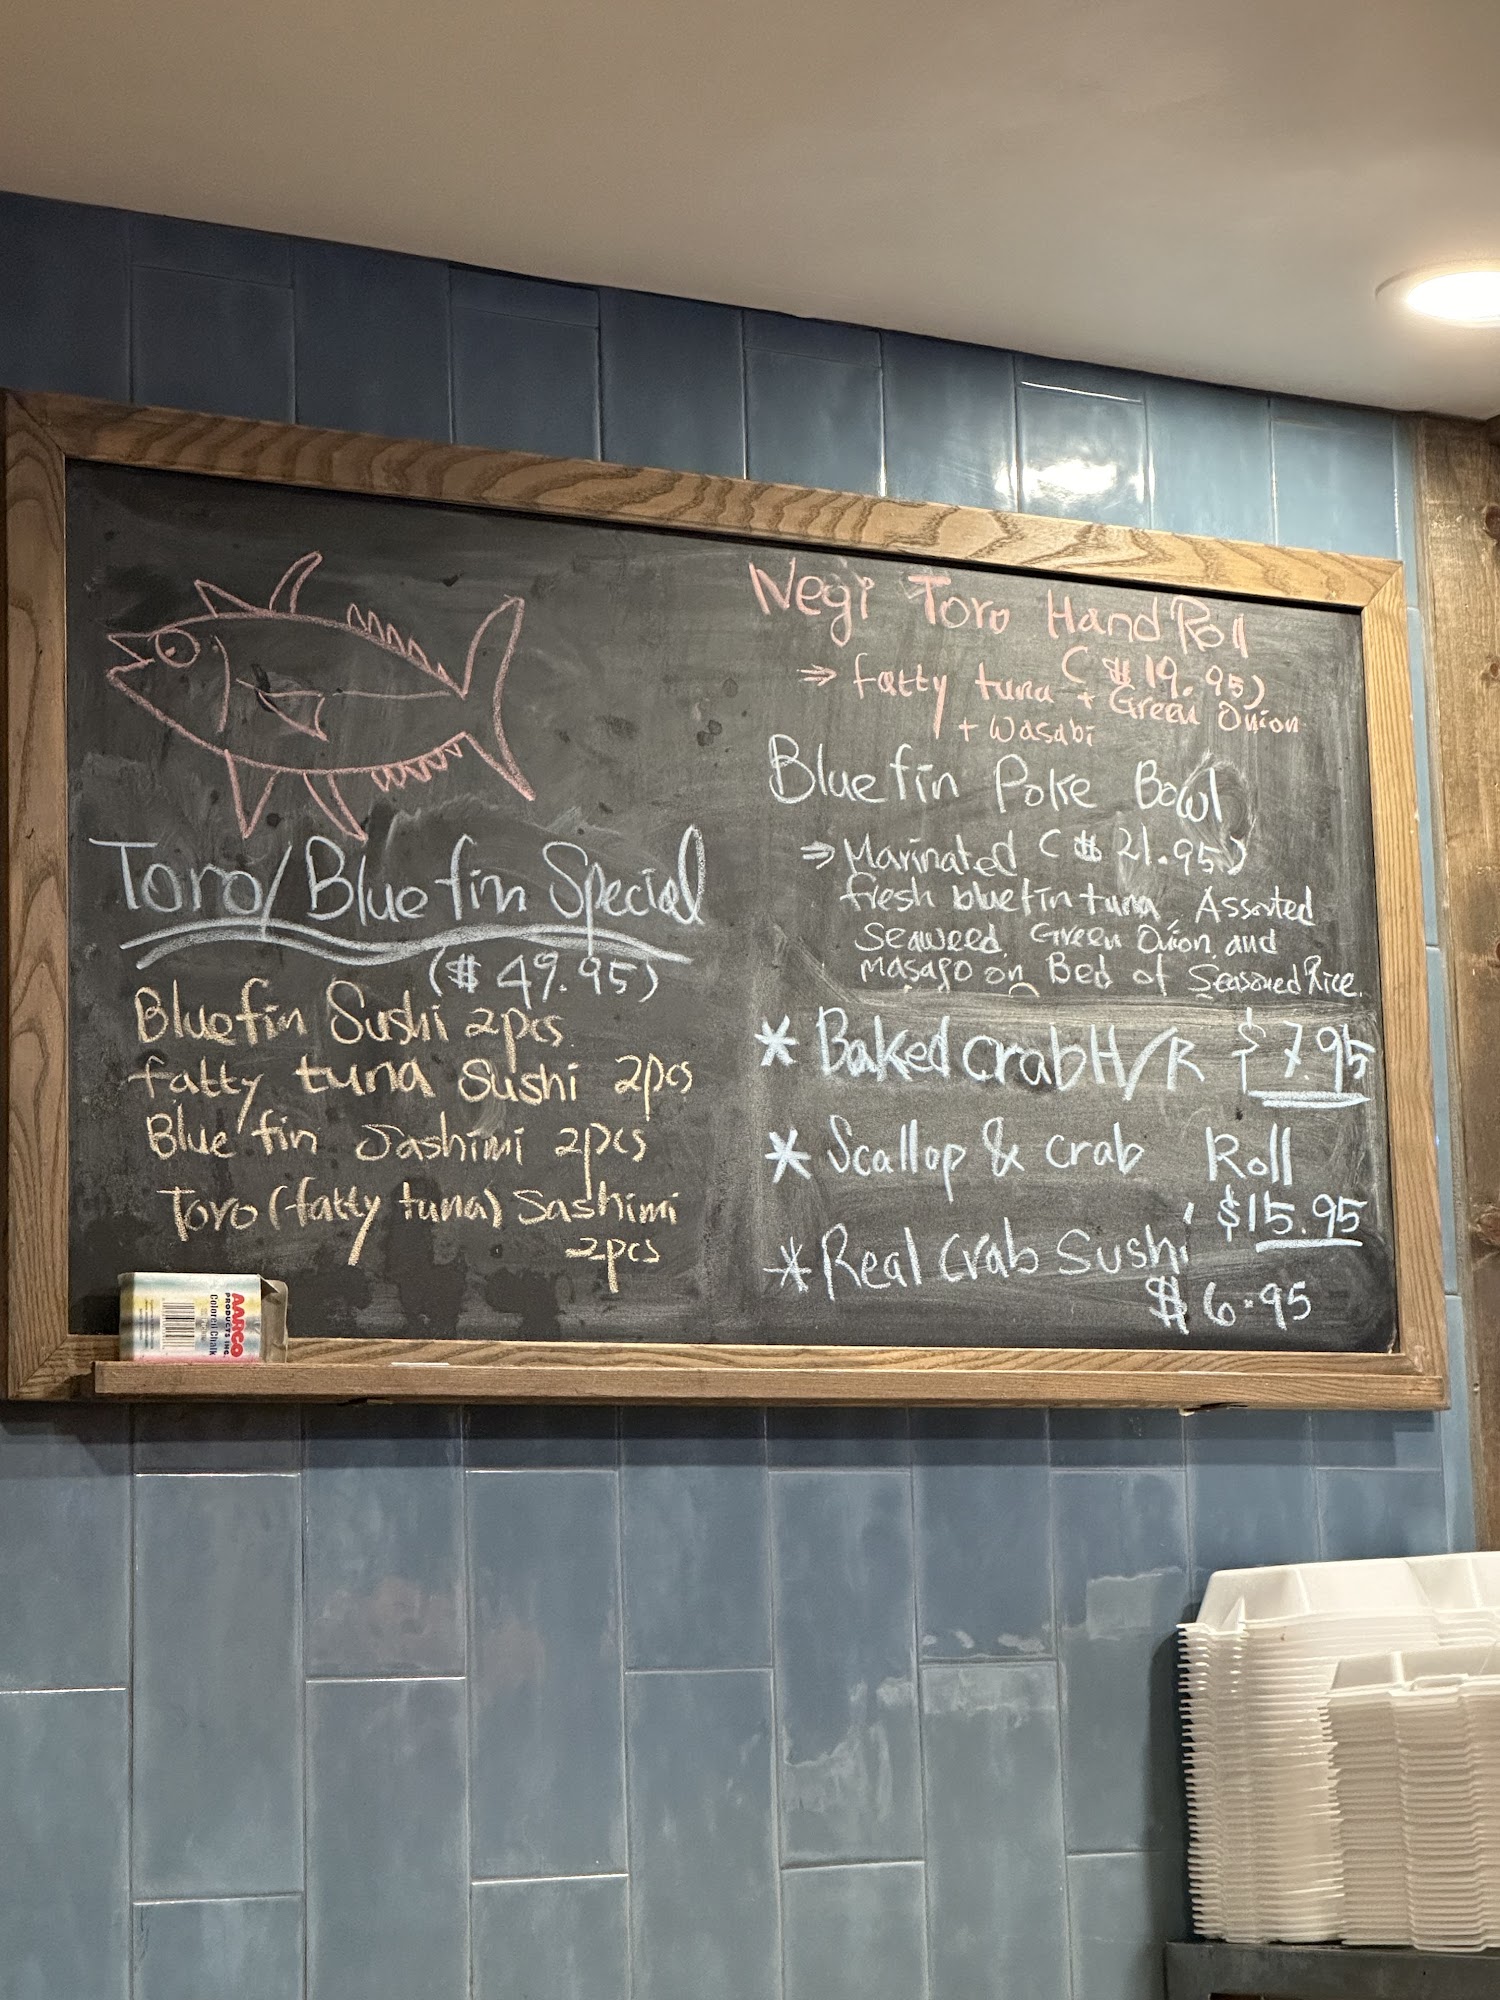 Toro/Bluefin Special
($49.95)
Bluefin Sushi 2pcs
fatty tuna Sushi 2pcs
Bluefin Sashimi 2pcs
Toro (fatty tuna) Sashimi
2pcs
Negi Toro Hand Roll
($19.95)
⇒ fatty tuna + Green Onion
+ Wasabi
Bluefin Poke Bowl
⇒ Marinated ($21.95)
fresh bluefin tuna, Assorted
Seaweed, Green Onion, and
masago on Bed of Seasoned Rice.
* Baked Crab H/R $7.95
* Scallop & Crab Roll
$15.95
* Real Crab Sushi
$6.95
AARCO
PRODUCTS INC.
Colored Chalk